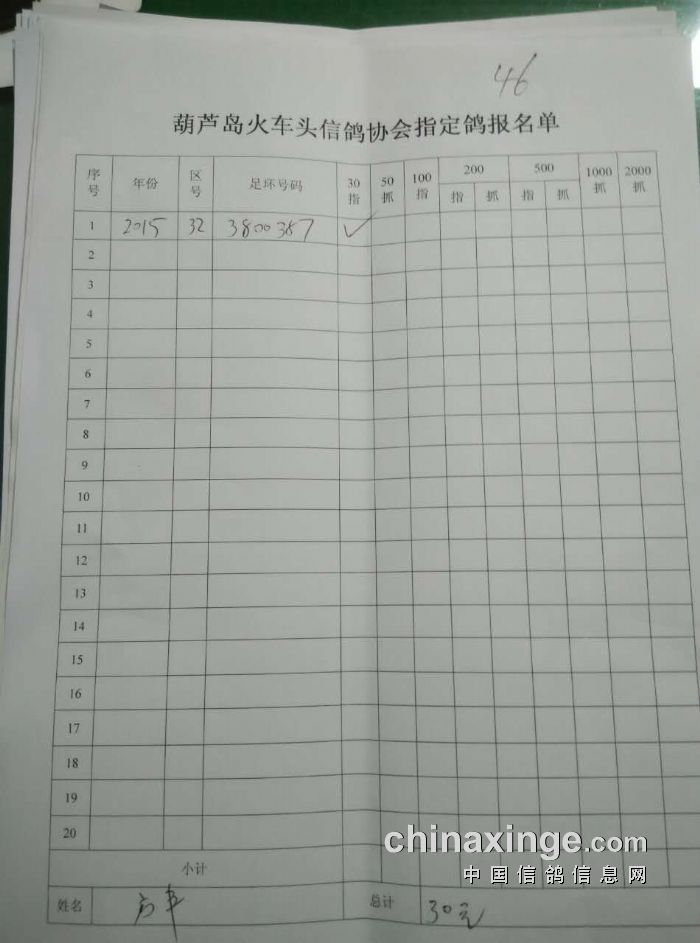 46
葫芦岛火车头信鸽协会指定鸽报名单
序号 年份 区号 足环号码 30指 50抓 100指 200 500 1000抓 2000抓
指 抓 指 抓
1 2015 32 3800387 ✓
2
3
4
5
6
7
8
9
10
11
12
13
14
15
16
17
18
19
20
小计
姓名 总计 30元
chinaxinge.com
中国信鸽信息网